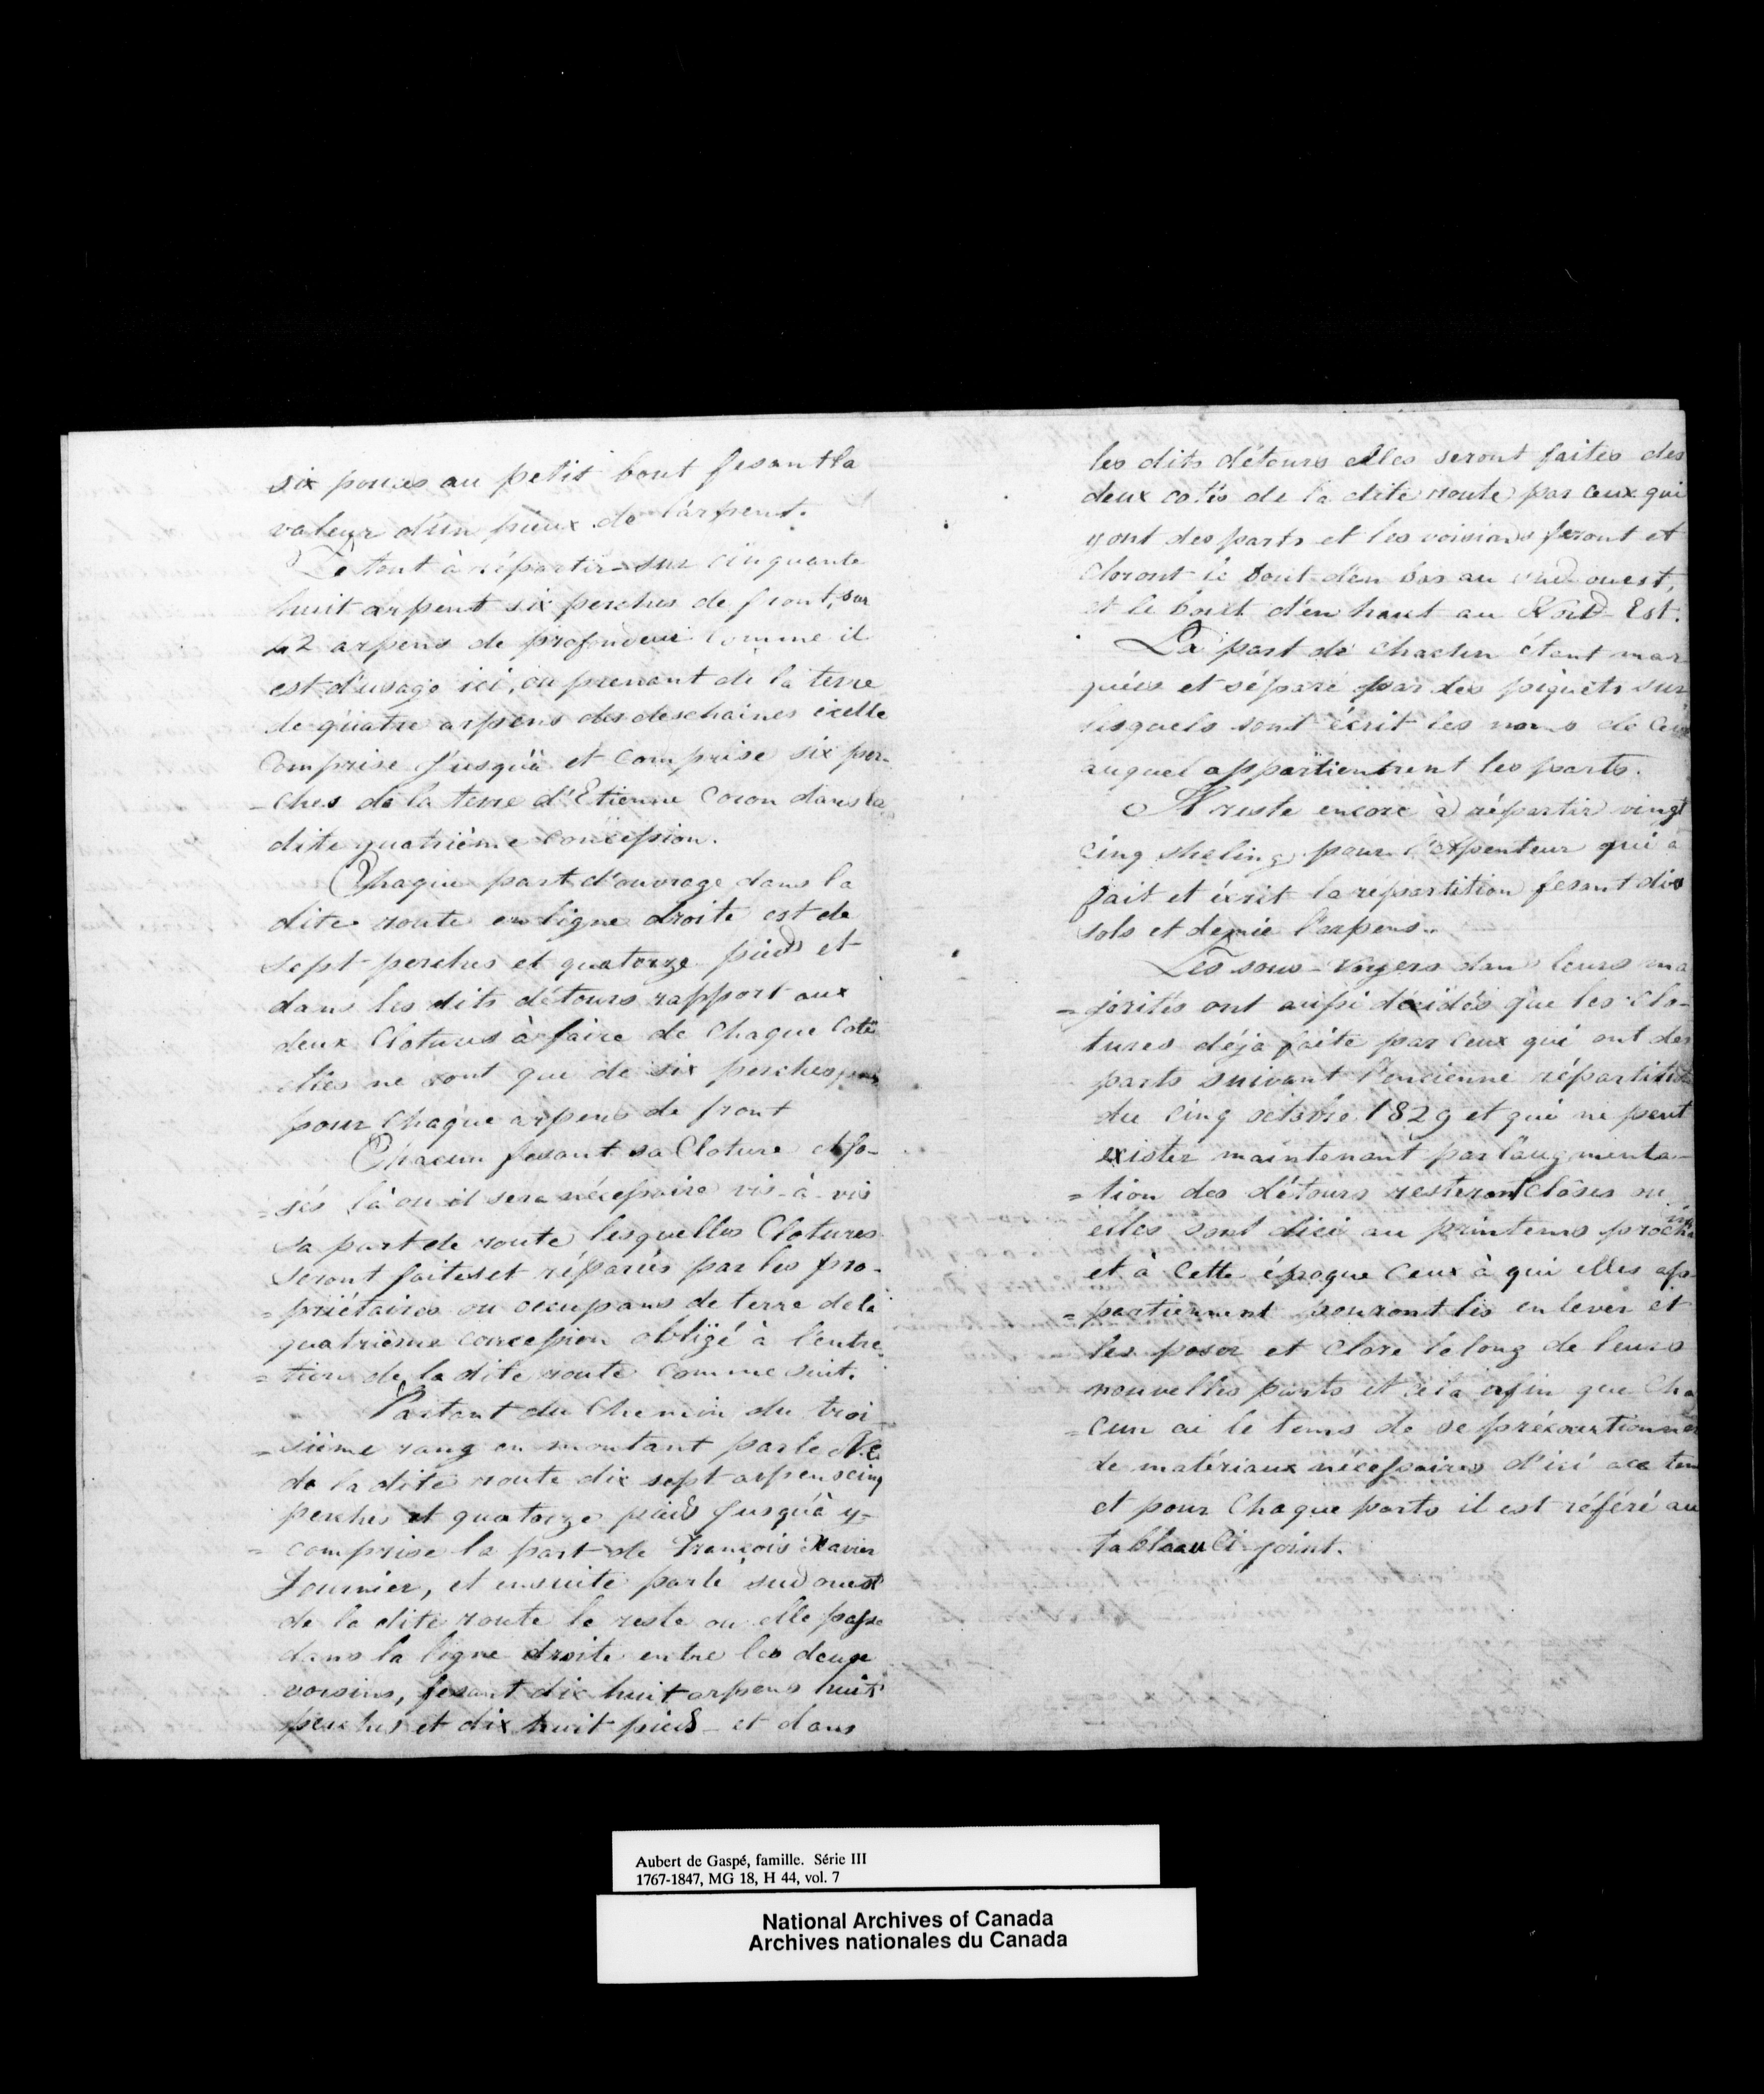 six pouces au petit bout fesant la
valeur d'un pieux de l'arpent.
Le tout à répartir sur cinquante
huit arpent six perches de front, sur
42 arpens de profondeur comme il
est d'usage ici, en prenant de la terre
de quatre arpens des deschaines icelle
comprise jusqu'à et comprise six per-
-ches de la terre d'Etienne Coron dans la
dite quatrième concession.
Chaque part d'ouvrage dans la
dite route en ligne droite est de
sept perches et quatorze pieds et
dans les dits détours rapport aux
deux Clotures à faire de chaque coté
elles ne sont que de six perches
pour chaque arpens de front
Chacun fesant sa Cloture et fo-
=sés là ou il sera nécessaire vis-à-vis
sa part de route lesquelles Clotures
seront faites et réparés par les pro-
=priétaires ou occupans de terre de la
quatrième concession obligé à l'entre
=tien de la dite route comme suit.
Partant du Chemin du troi
=sième rang en montant par le N.E
de la dite route dix sept arpens cinq
perches et quatorze pieds jusqu'à y-
=comprise la part de François Xavier
Fournier, et ensuite par le sud ouest
de la dite route le reste ou elle passe
dans la ligne droite entre les deux
voisins, fesant dix huit arpens huit
perches et dix huit pieds et dans
les dits détours elles seront faites des
deux cotés de la dite route par ceux qui
y ont des parts et les voisins feront et
cloront le bout d'en bas au sud ouest,
et le bout d'en haut au Nord-Est.
La part de chacun étant mar
quées et séparé par des piquets sur
lesquels sont écrit les noms de Ceux
auquel appartientrent les parts.
Il reste encore à répartir vingt
cinq sheling pour l'arpenteur qui a
fait et écrit la répartition fesant dix
sols et demie l'arpens.
Les sous-voyers dans leurs ma
=jorités ont aussi décidés que les clo-
tures déja faite par ceux qui ont des
parts suivant l'ancienne répartition
du cinq octobre 1829 et qui ne peut
exister maintenant par l'augmenta-
=tion des détours resteront closes ou
elles sont d'ici au printems prochain
et à cette époque ceux à qui elles ap-
=partiennent pouront les enlever et
les poser et clore le long de leurs
nouvelles parts et cela afin que cha
=cun ai le tems de se précautionner
de matériaux nécessaires d'ici a ce tem
et pour chaque parts il est référé au
tableau Ci-joint.
Aubert de Gaspé, famille. Série III
1767-1847, MG 18, H 44, vol. 7
National Archives of Canada
Archives nationales du Canada